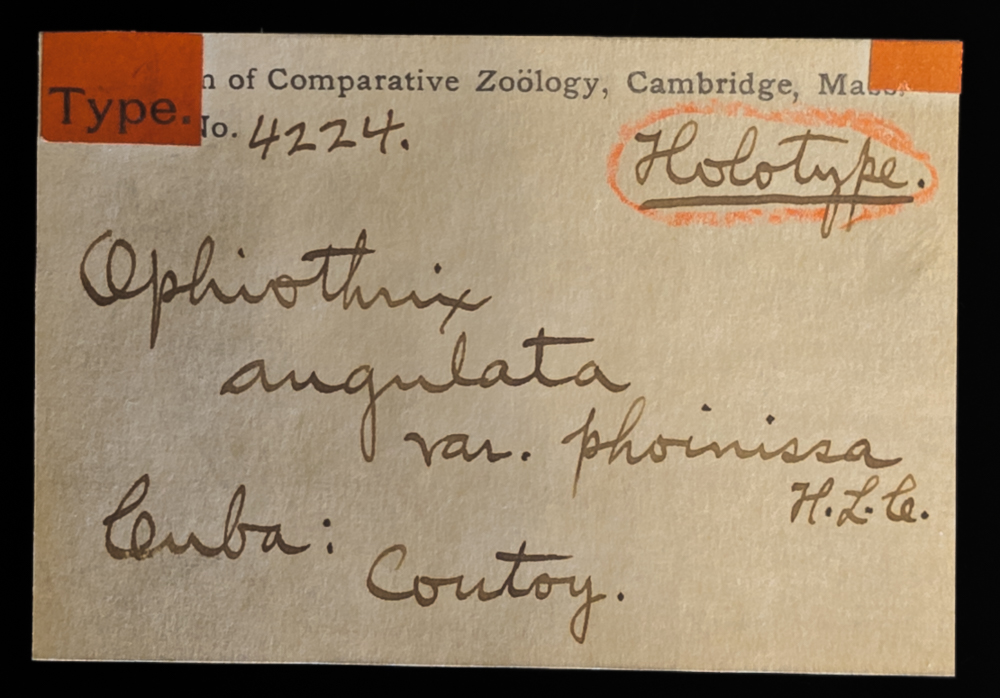 Type.
n of Comparative Zoölogy, Cambridge, Mass.
No. 4224.
Holotype.
Ophiothrix
angulata
var. phoinissa
H.L.C.
Cuba:
Contoy.